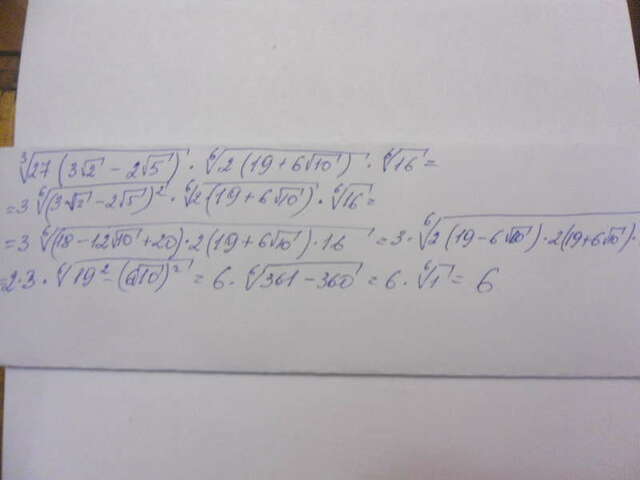 ∛(27(3√2 − 2√5)) · ⁶√(2(19+6√10)) · ⁶√16 =
= 3 ⁶√((3√2 − 2√5)²) · ⁶√(2(19+6√10)) · ⁶√16 =
= 3 ⁶√((18−12√10+20)·2(19+6√10)·16) = 3· ⁶√(2(19−6√10)·2(19+6√10)·
= 2·3· ⁶√(19²−(6√10)²) = 6· ⁶√(361−360) = 6· ⁶√1 = 6